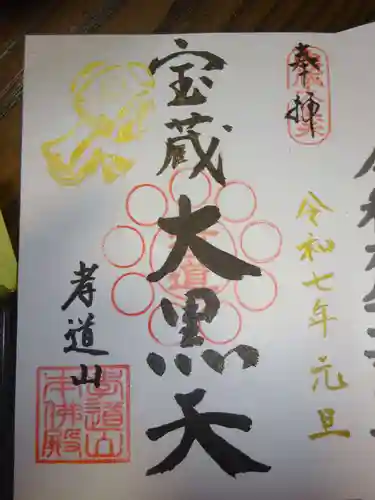 奉拝
令和七年元旦
宝蔵大黒天
孝道
孝道山
孝道山
本仏殿